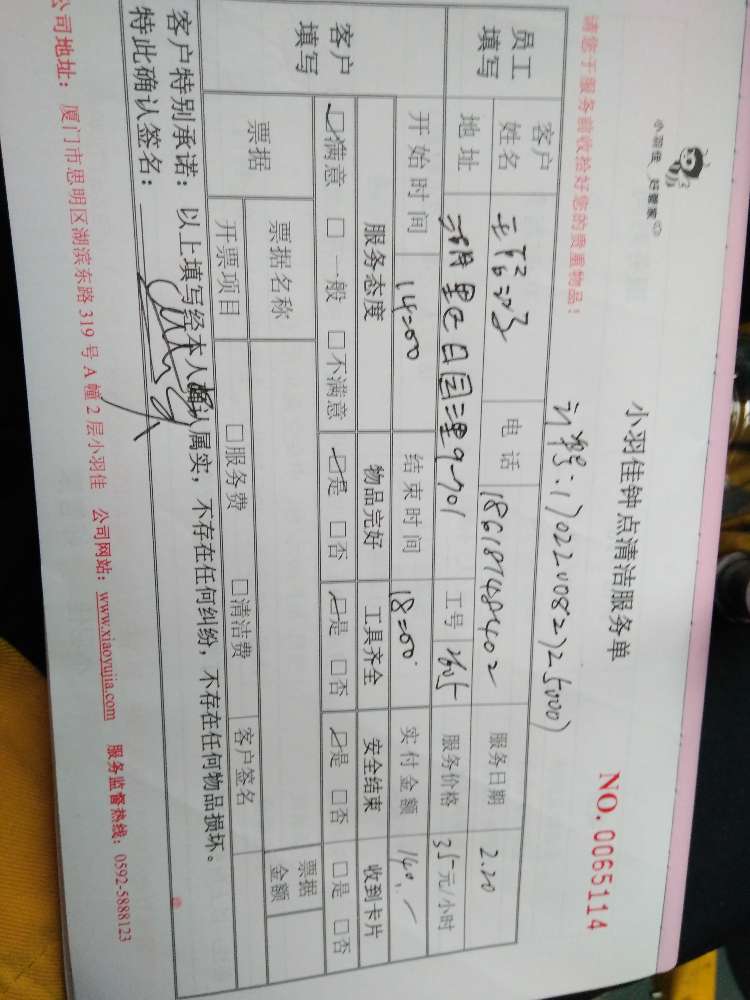 小羽佳 好管家
小羽佳钟点清洁服务单
NO. 0065114
请您于服务前收拾好您的贵重物品!
员工填写
客户姓名
电话
服务日期 2.20
地址
工号 2605
服务价格 35元/小时
客户填写
开始时间 14:00
结束时间 18:00
实付金额 140.-
服务态度 物品完好 工具齐全 安全结束 收到卡片
☑满意 □一般 □不满意 ☑是 □否 ☑是 □否 ☑是 □否 □是 □否
票据
票据名称
票据金额
开票项目 □服务费 □清洁费 客户签名
客户特别承诺:以上填写经本人确认属实,不存在任何纠纷,不存在任何物品损坏。
特此确认签名:
公司地址:厦门市思明区湖滨东路319号A幢2层小羽佳 公司网站:www.xiaoyujia.com 服务监督热线:0592-5888123